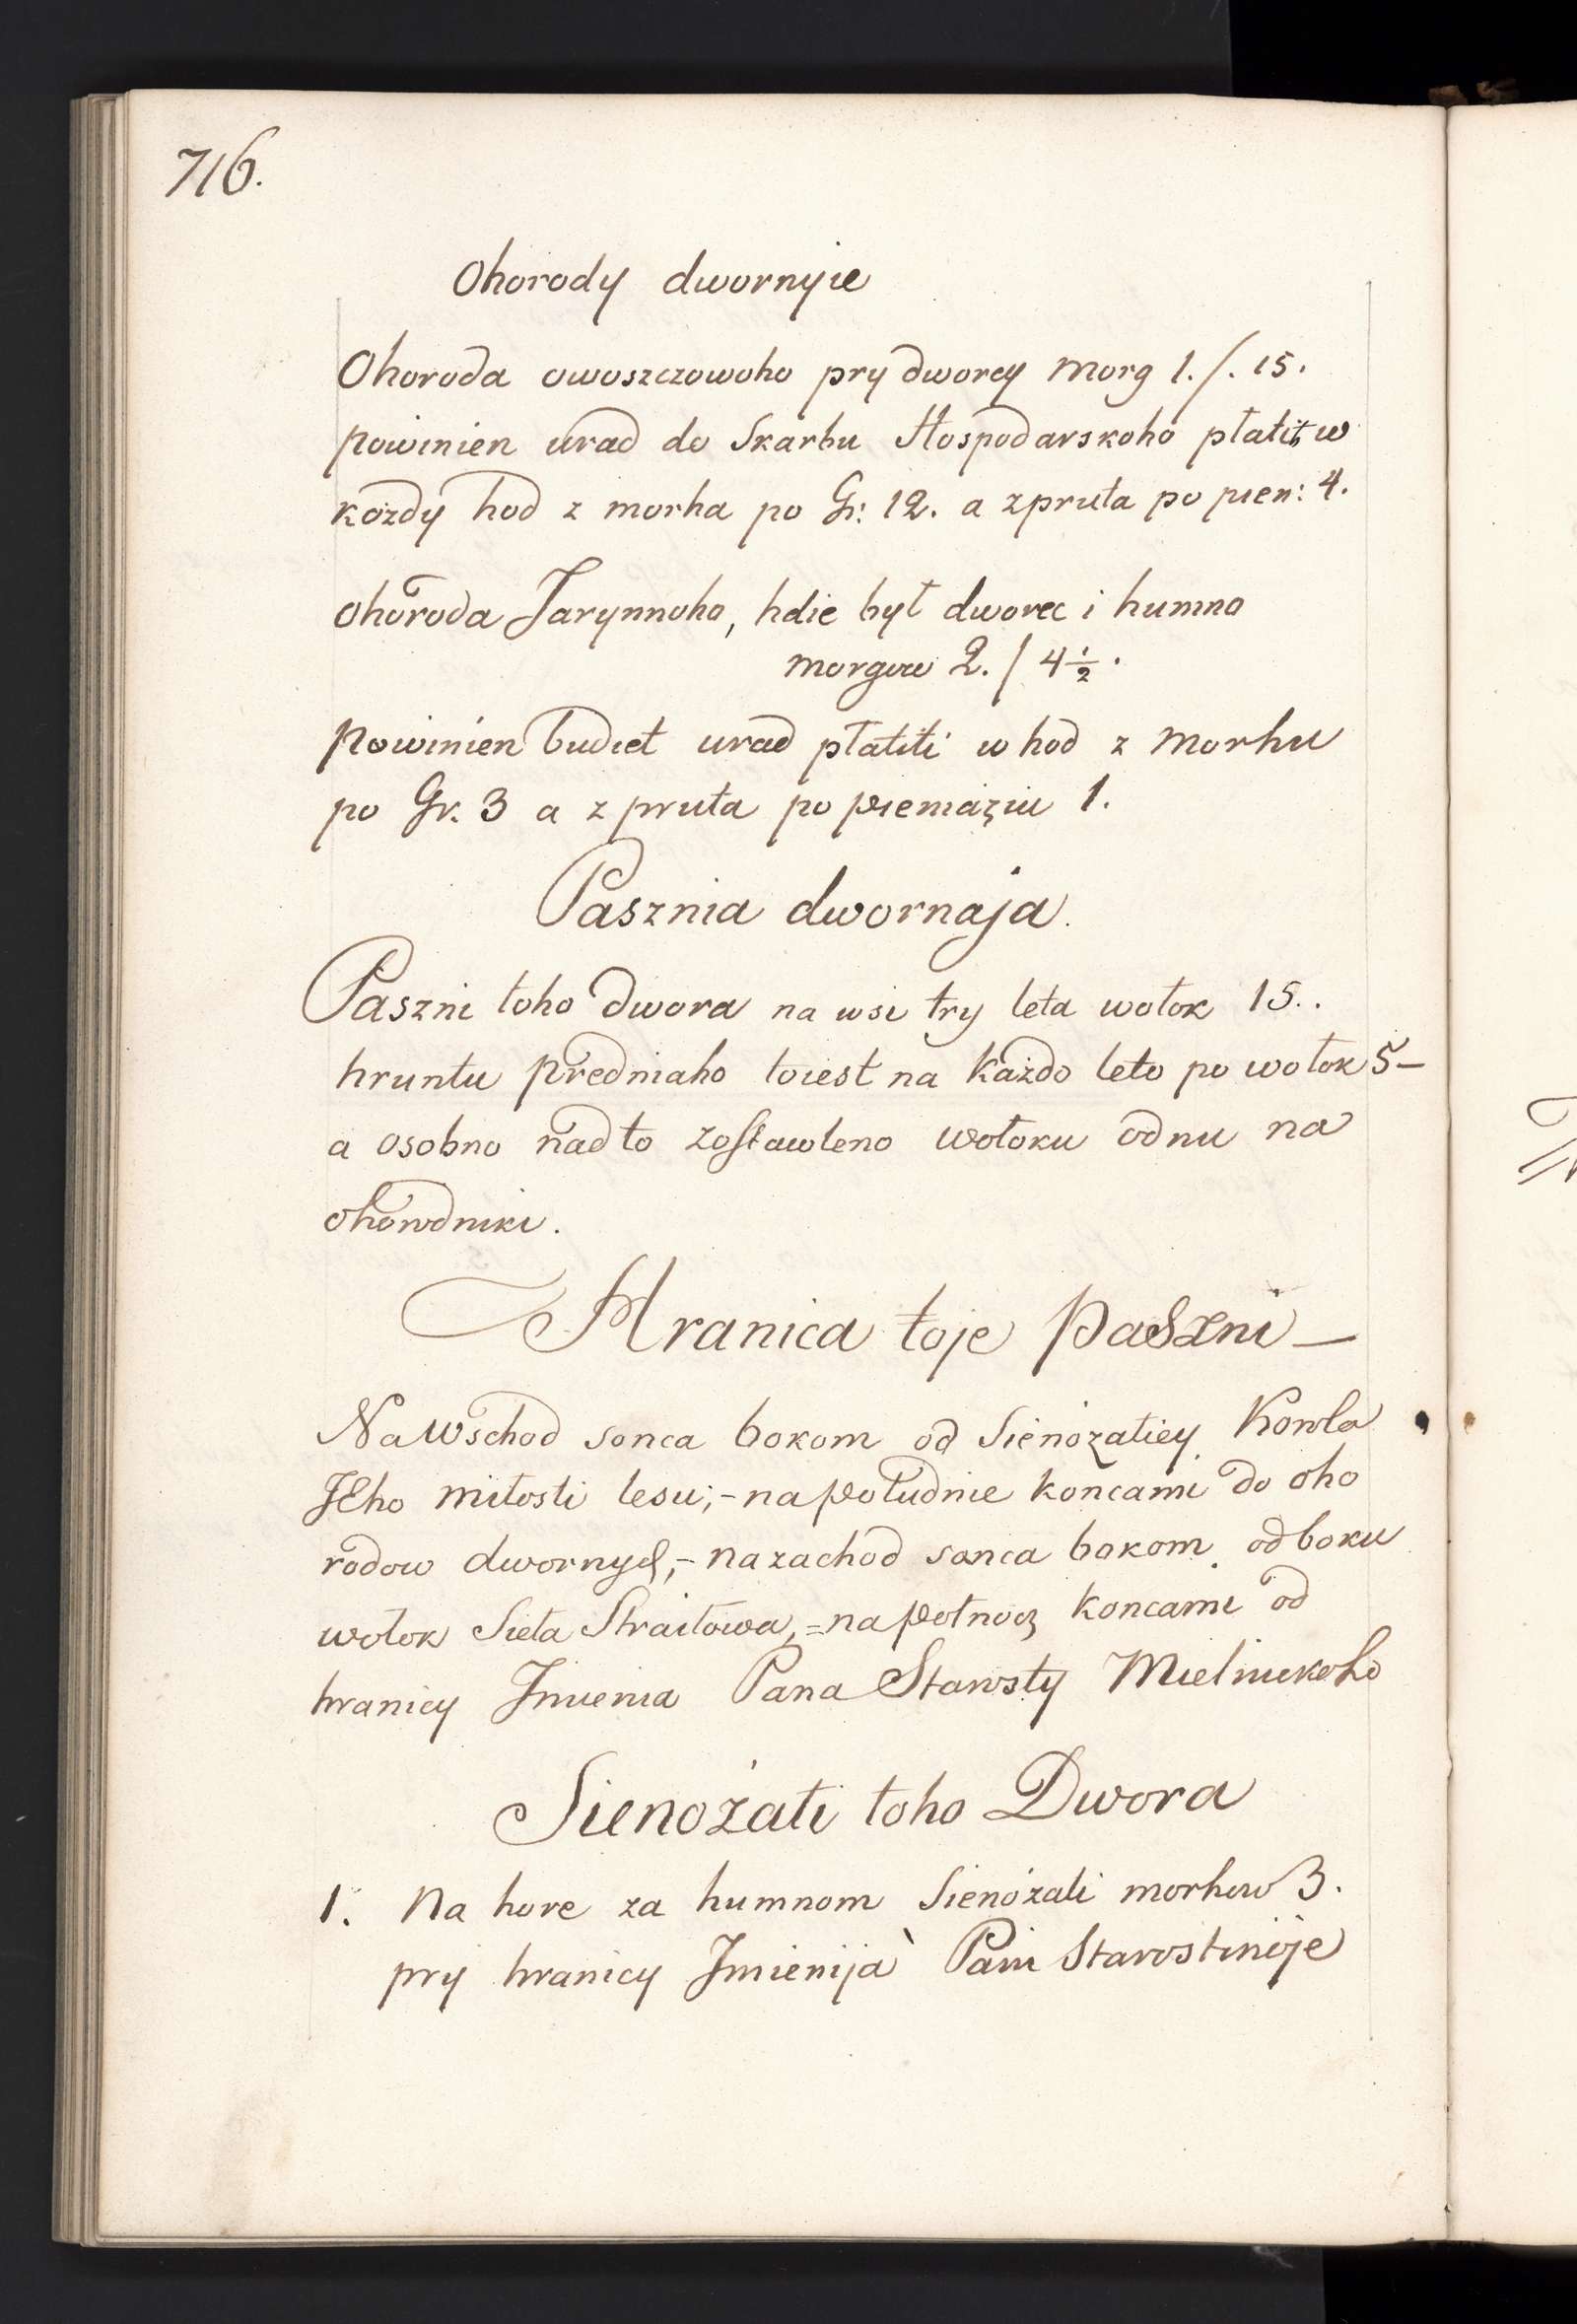 716.
Ohorody dwornyie
Ohoroda owoszczowoho pry dworcy morg 1./. 15.
powinien urad do Skarbu Hospodarskoho płatit w
kożdy hod z morha po Gr: 12. a z pruta po pien: 4.
ohoroda Jarynnoho, hdie był dworec i humno
morgow 2./ 4 ½.
powinien budiet urad płatiti w hod z morhu
po Gr. 3 a z pruta po pieniąziu 1.
Pasznia dwornaja.
Paszni toho dwora na wsi try leta wołok 15..
hruntu predniaho toiest na każdo leto po wołok 5–
a osobno nad to zostawleno wołoku odnu na
ohorodniki.
Hranica toje Paszni –
Na wschod sonca bokom od Sienożatiey Korola
JEho miłosti lesu; – na południe koncami do oho
rodow dwornych, – na zachod sonca bokom od boku
wołok Sieła Straiłowa, = na połnocz koncami od
hranicy Jmienia Pana Starosty Mielnickoho
Sienożati toho Dwora
1. Na hore za humnom Sienożati morhow 3.
pry hranicy Jmienija Pani Starostinoje